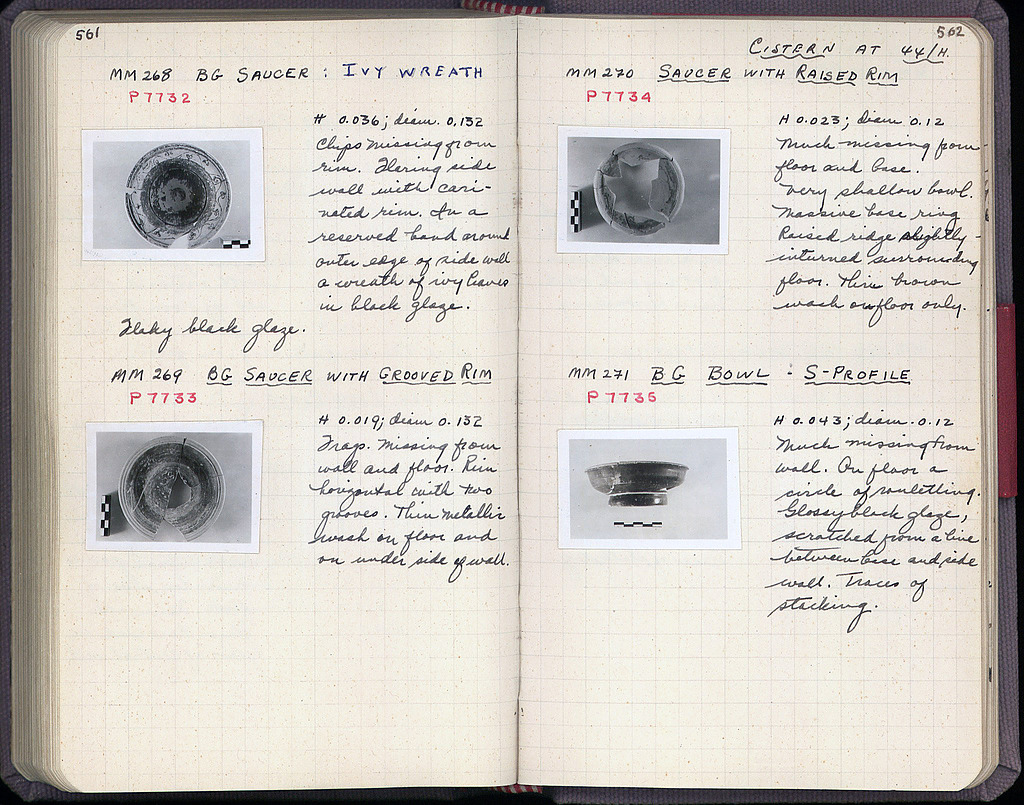 561
MM 268 BG SAUCER : IVY WREATH
P 7732
H 0.036; diam. 0.132
Chips missing from
rim. Flaring side
wall with cari-
nated rim. In a
reserved band around
outer edge of side wall
a wreath of ivy leaves
in black glaze.
Flaky black glaze.
MM 269 BG SAUCER WITH GROOVED RIM
P 7733
H 0.019; diam 0.132
Frags. missing from
wall and floor. Rim
horizontal with two
grooves. Thin metallic
wash on floor and
on under side of wall.
562
CISTERN AT 44/H.
MM 270 SAUCER WITH RAISED RIM
P 7734
H 0.023; diam 0.12
Much missing from
floor and base.
Very shallow bowl.
Massive base ring
Raised ridge slightly
inturned surrounding
floor. Thin brown
wash on floor only.
MM 271 BG BOWL : S-PROFILE
P 7735
H 0.043; diam. 0.12
Much missing from
wall. On floor a
circle of rouletting.
Glossy black glaze,
scratched from a line
between base and side
wall. Traces of
stacking.